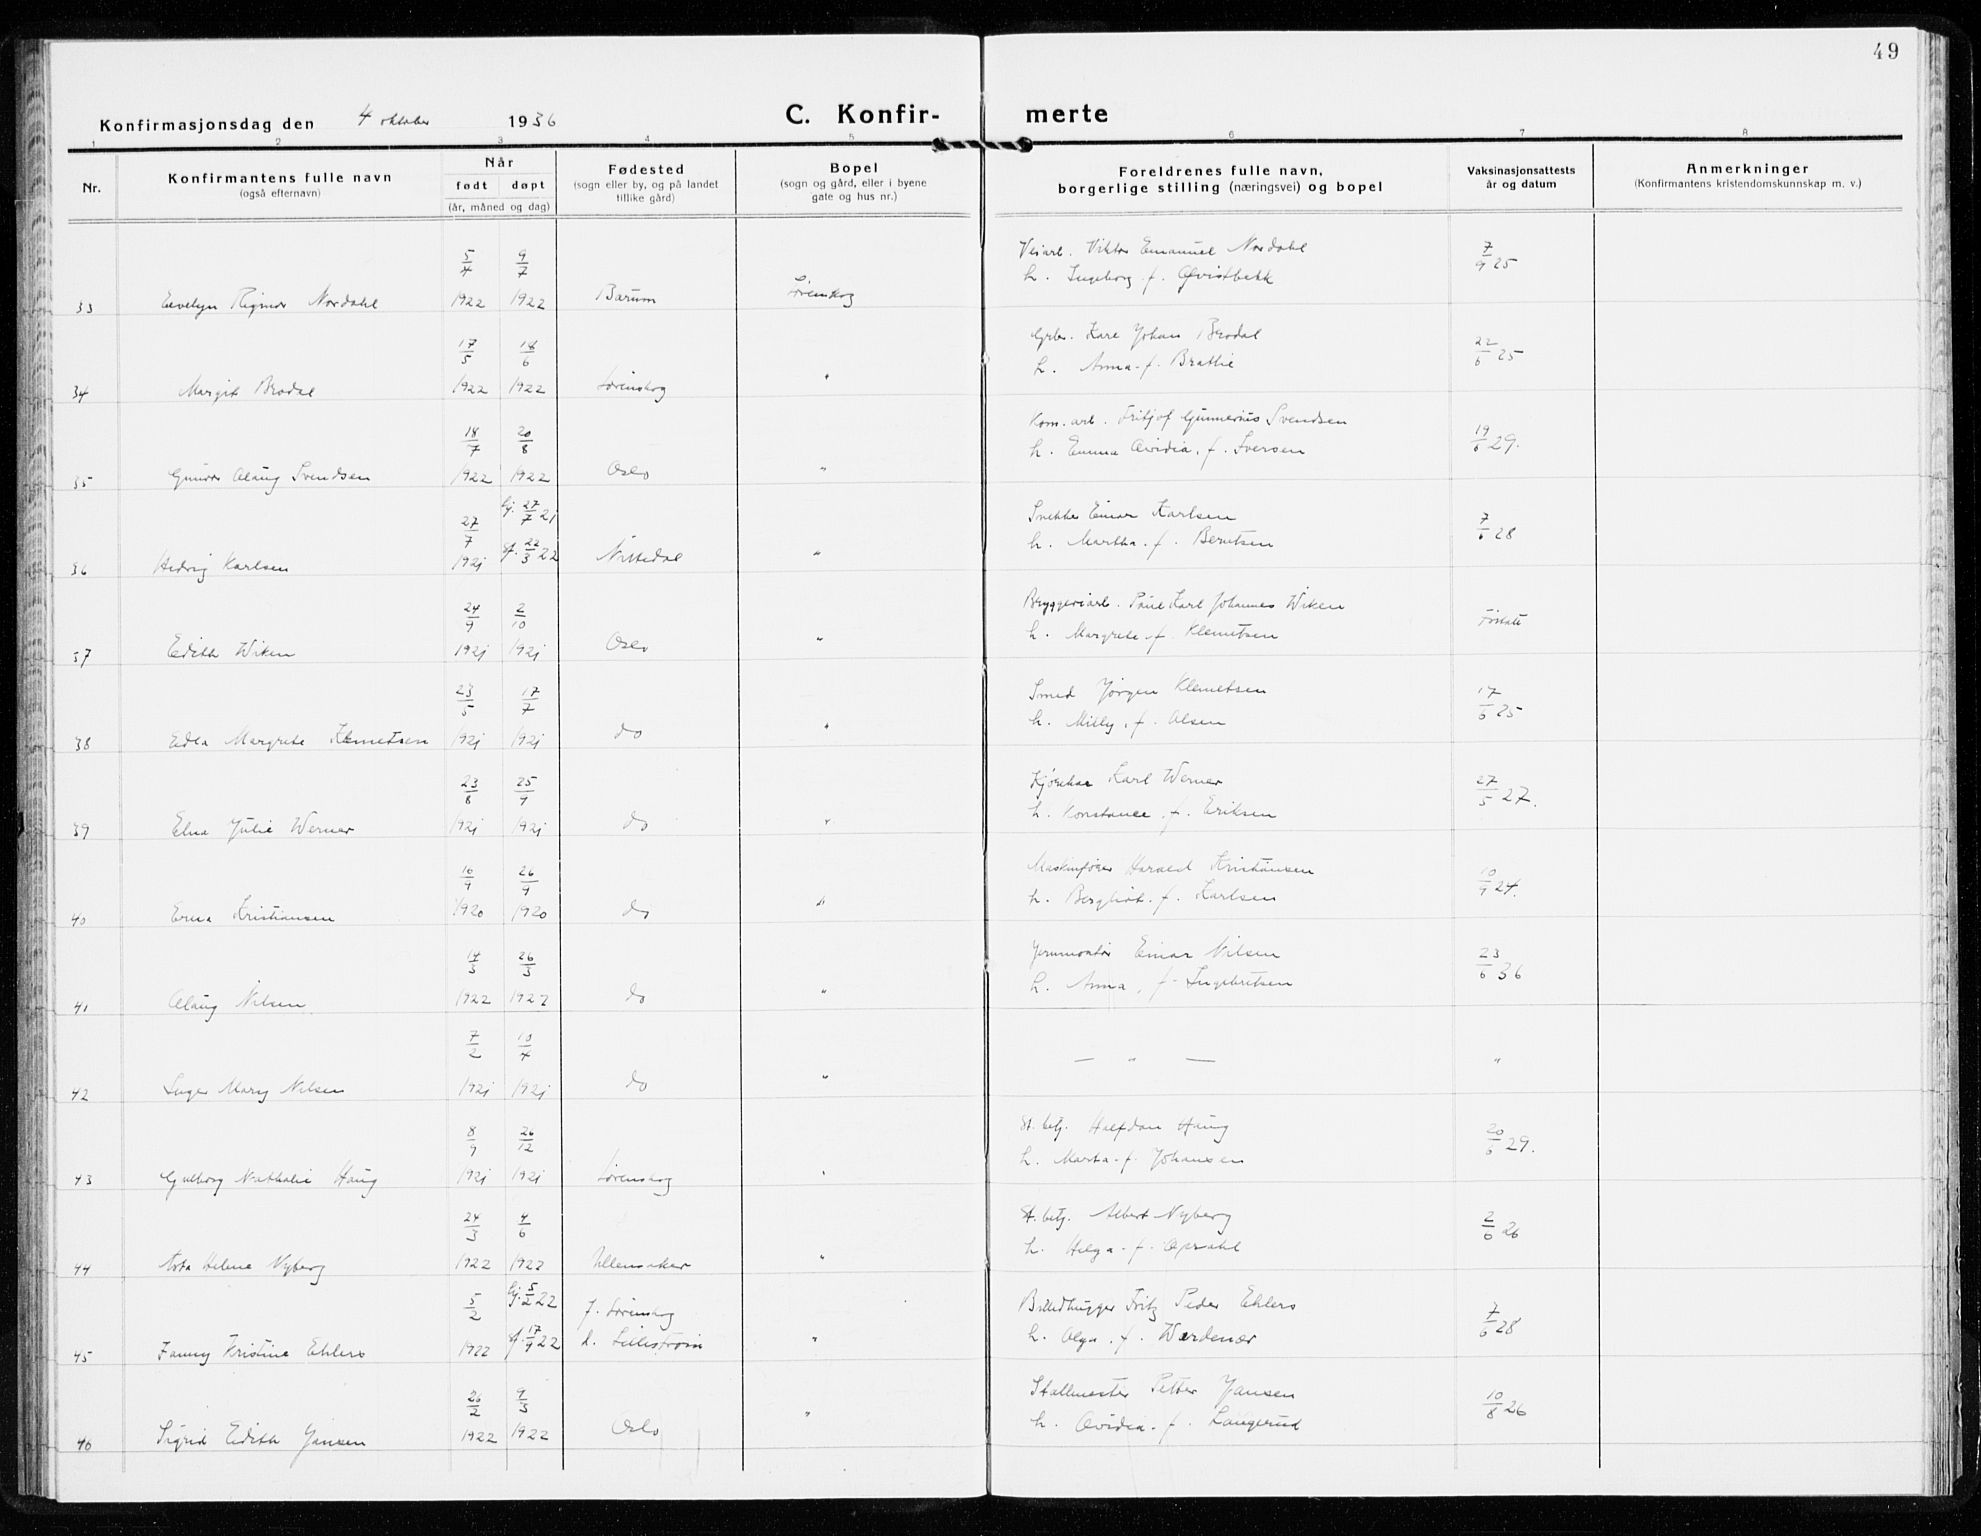 49
Konfirmasjonsdag den 4 oktober 1936
C. Konfir- merte
1 2 3 4 5 6 7 8
Nr.
Konfirmantens fulle navn
(også efternavn)
Når
født døpt
(år, måned og dag)
Fødested
(sogn eller by, og på landet
tillike gård)
Bopel
(sogn og gård, eller i byene
gate og hus nr.)
Foreldrenes fulle navn,
borgerlige stilling (næringsvei) og bopel
Vaksinasjonsattests
år og datum
Anmerkninger
(Konfirmantens kristendomskunnskap m. v.)
5/4 9/7 Veiarb. Viktor Emanuel Nordahl 7/9 25
h. Ingeborg f. Qvistbekk
33 Eevelyn Rigmor Nordahl 1922 1922 Bærum Lørenskog
17/5 18/6 Grbr. Kare Johan Brodal 22/6 25
h. Anna f. Brattlie
34 Margit Brodal 1922 1922 Lørenskog "
18/7 20/8 Kom. arb. Fritjof Gunnerius Svendsen 19/6 29.
h. Emma Ovidia, f. Iversen
35 Gunvor Olaug Svendsen 1922 1922 Oslo "
27/7 Hj. 27/7 21 Snekker Einar Karlsen 7/6 28
st. 22/3 22 h. Martha f. Berntsen
36 Hedvig Karlsen 1921 Nittedal "
24/9 2/10 Bryggeriarb. Paul Karl Johannes Wiken
h. Margrete f. Klemetsen
37 Edith Wiken 1921 1921 Oslo "
23/5 17/7 Smed Jørgen Klemetsen 17/6 25
h. Milly, f. Olsen
38 Edla Margrete Klemetsen 1921 1921 do "
23/8 25/9 Karl Werner 27/5 27.
h. Konstance, f. Eriksen
39 Elna Julie Werner 1921 1921 do "
16/9 26/9 Maskinfører Harald Kristiansen 10/9 24.
h. Bergliot f. Karlsen
40 Erna Kristiansen 1920 1920 do "
14/3 26/3 Jernmontør Einar Nilsen 23/6 36
h. Anna, f. Ingebretsen
41 Olaug Nilsen 1922 1922 do "
7/2 10/4 — " — "
42 Inger Mary Nilsen 1921 1921 do "
8/9 26/12 St. betj. Halfdan Haug 20/6 29.
h. Marta f. Johansen
43 Gulborg Nathalie Haug 1921 1921 Lørenskog "
24/3 4/6 St. betj. Albert Nyberg 2/6 26
h. Helga f. Opsahl
44 Asta Helene Nyberg 1922 1922 Ullensaker "
5/2 Hj. 5/2 22 f. Lørenskog Billedhugger Fritz Peder Ehlers 7/6 28
st. 17/9 22 d. Lillestrøm h. Olga, f. Werdenær
45 Fanny Kristine Ehlers 1922 "
26/2 9/3 Stallmester Petter Jansen 10/8 26
h. Ovidia f. Langerud
46 Sigrid Edith Jansen 1922 1922 Oslo "